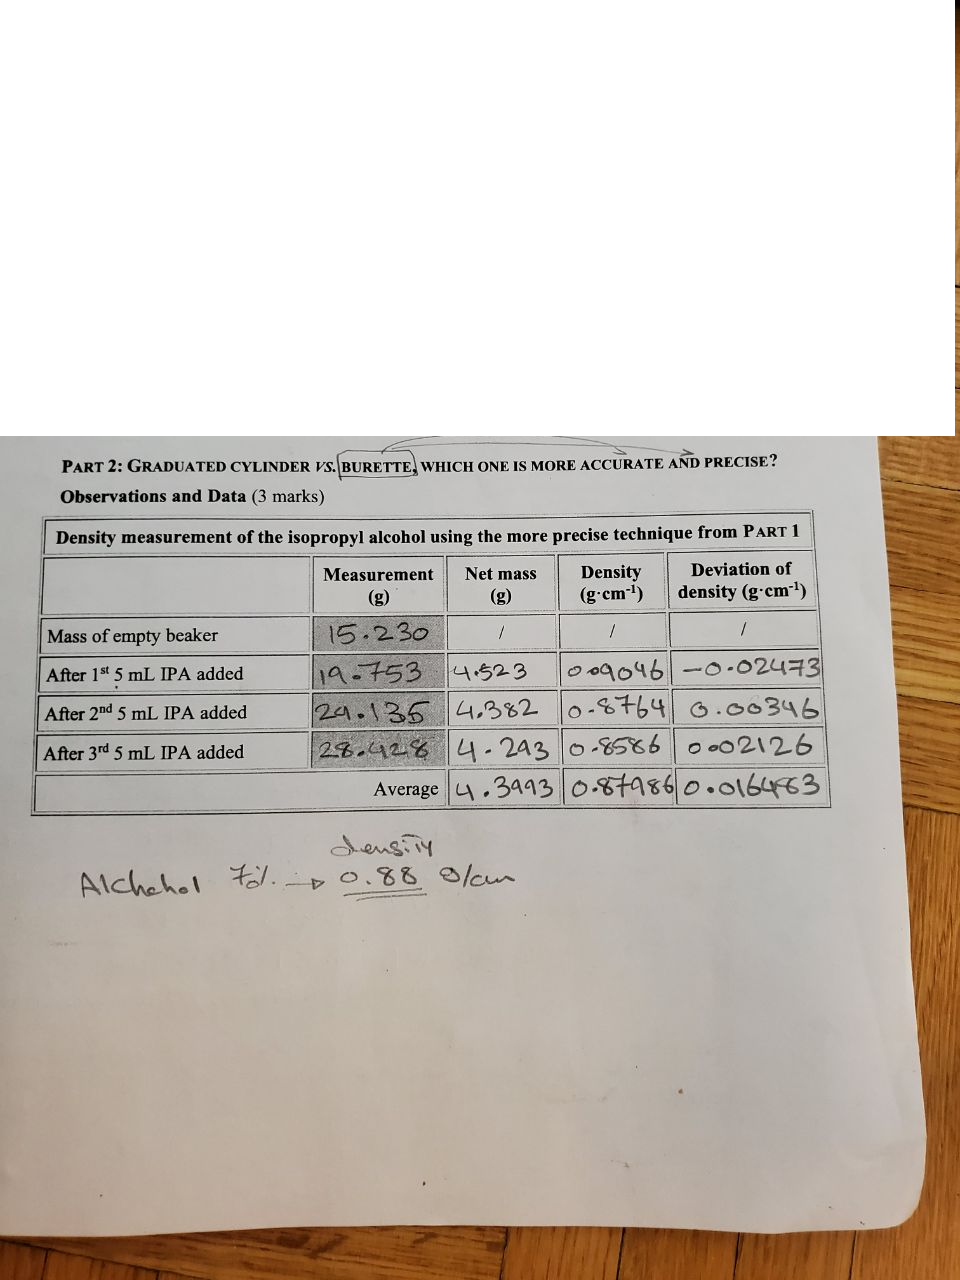 PART 2: GRADUATED CYLINDER VS. BURETTE, WHICH ONE IS MORE ACCURATE AND PRECISE?
Observations and Data (3 marks)
Density measurement of the isopropyl alcohol using the more precise technique from PART 1
Measurement (g) Net mass (g) Density (g·cm⁻¹) Deviation of density (g·cm⁻¹)
Mass of empty beaker 15.230 / / /
After 1st 5 mL IPA added 19.753 4.523 0.9046 -0.02473
After 2nd 5 mL IPA added 24.135 4.382 0.8764 0.00346
After 3rd 5 mL IPA added 28.428 4.293 0.8586 0.02126
Average 4.3993 0.87986 0.0164863
density
Alchohol 70%. → 0.88 g/cm